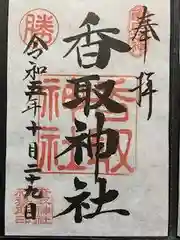 奉拝
香取神社
令和五年十月二十九日
勝
香取神社